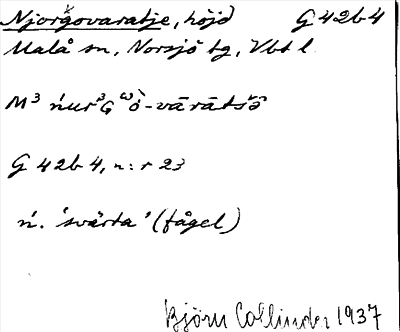 Njorgovaratje, höjd G 42b4
Malå sn, Norsjö tg, Vbt l.
G 42b 4, n:r 23
ń. 'svärta' (fågel)
Björn Collinder 1937